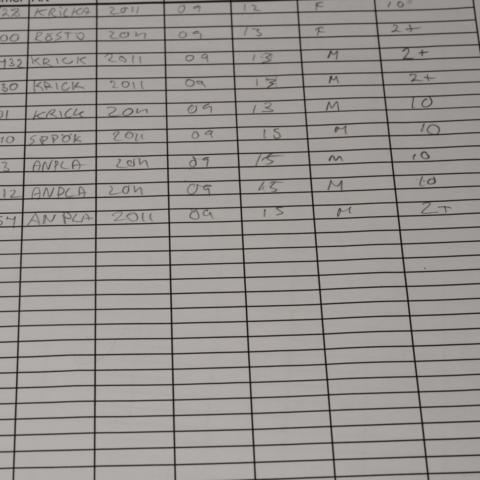 28 KRICKA 2011 09 12 F 10
00 RÖSTO 2011 09 13 F 2+
432 KRICK 2011 09 13 M 2+
30 KRICK 2011 09 13 M 2+
01 KRICK 2011 09 13 M 10
10 SPPÖK 2011 09 15 M 10
3 ANPLA 2011 09 15 M 10
12 ANPLA 2011 09 15 M 10
54 ANPLA 2011 09 15 M 2+